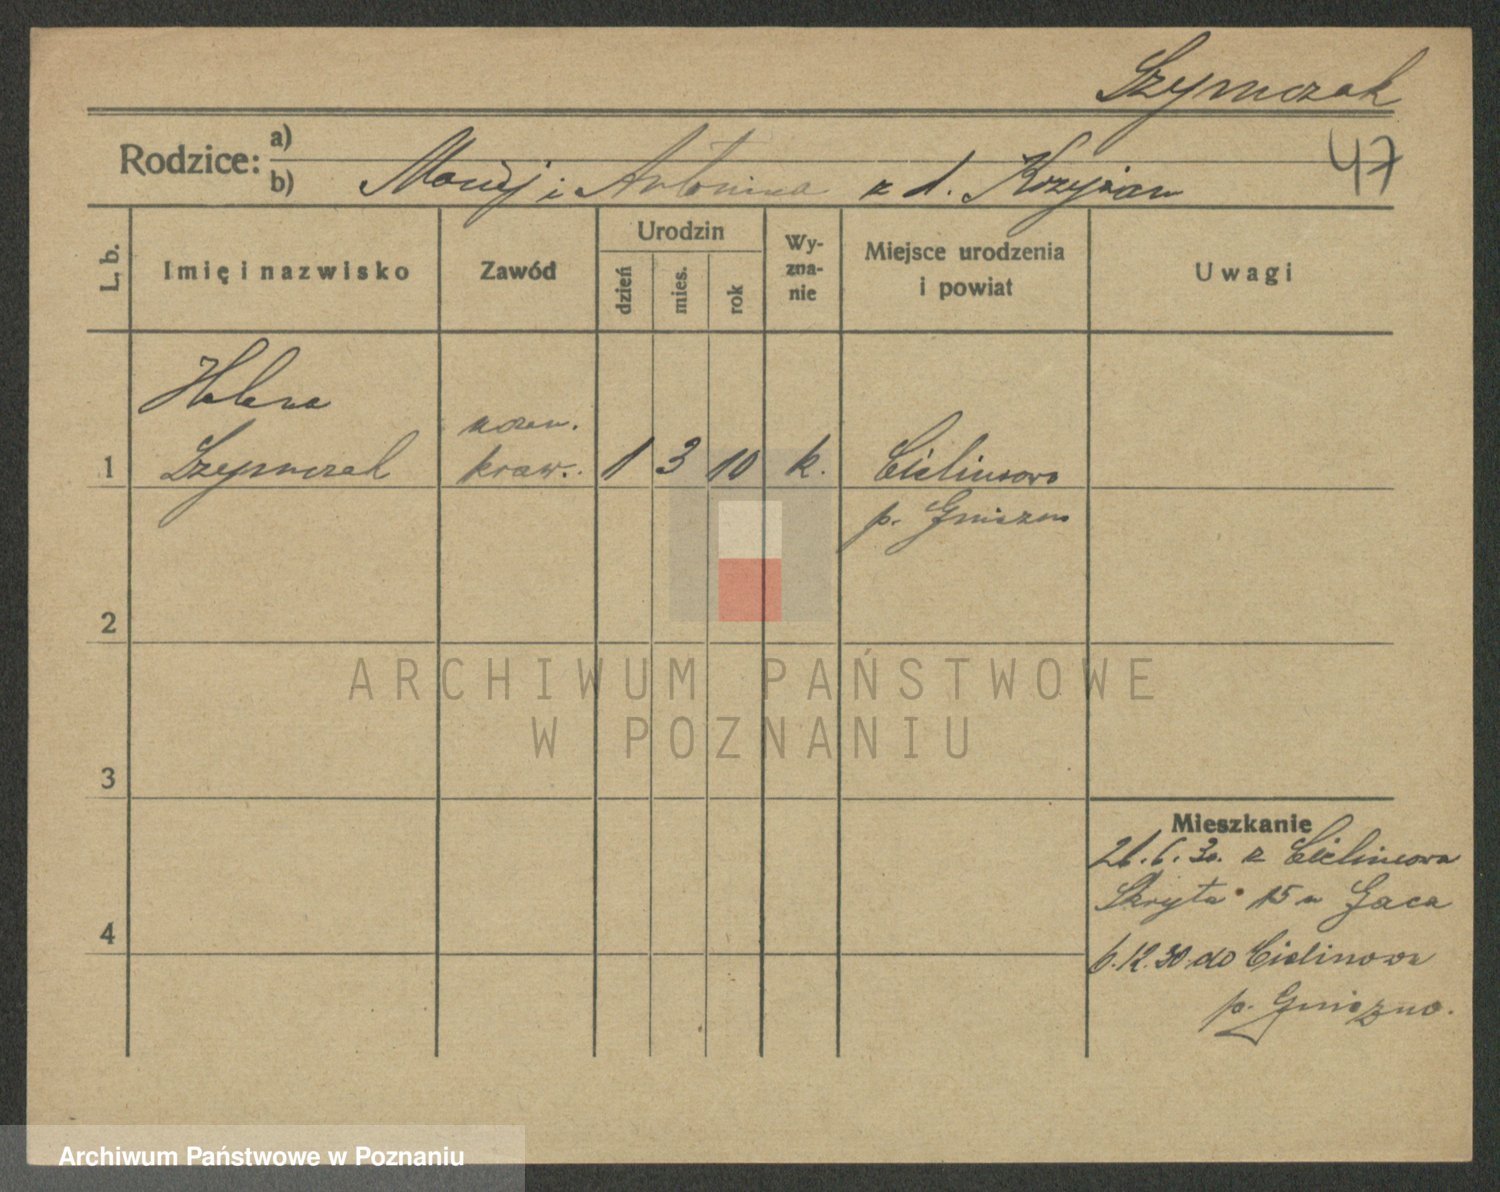 Szymczak
47
Rodzice: a)
b) Maciej i Antonina z d. Krzyżan
L. b.
Imię i nazwisko
Zawód
Urodzin
dzień
mies.
rok
Wy-
zna-
nie
Miejsce urodzenia
i powiat
Uwagi
Helena
1 Szymczak
uczen.
kraw.
1 3 10 k.
Cielimowo
p. Gniezno
2
3
4
Mieszkanie
21.6.30. z Cielimowa
Skryta 15 u Gaca
6.12.30 do Cielimowa
p. Gniezno.
ARCHIWUM PAŃSTWOWE
W POZNANIU
Archiwum Państwowe w Poznaniu